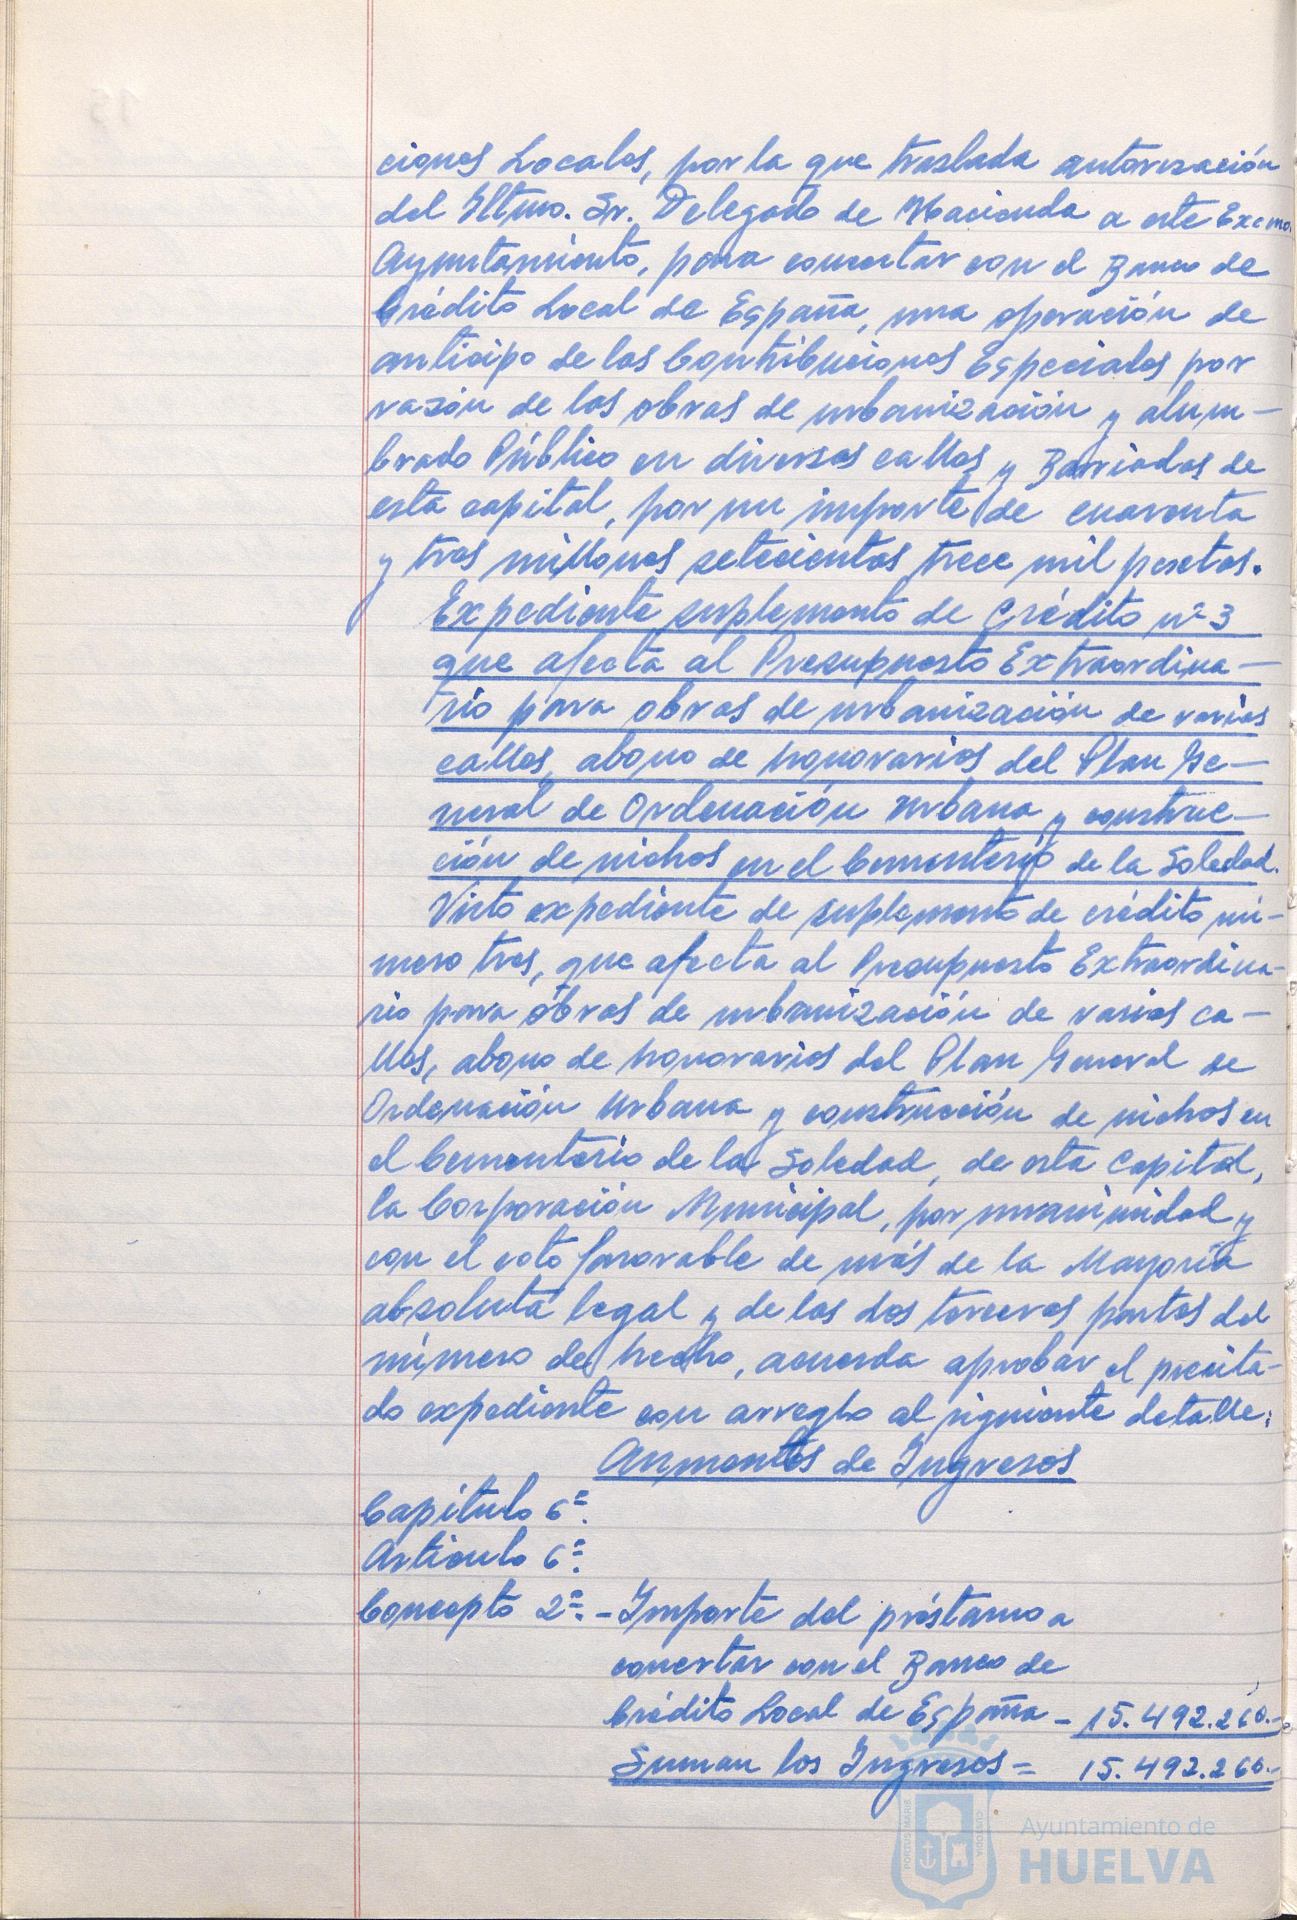 ciones Locales, por la que traslada autorización
del Iltmo. Sr. Delegado de Hacienda a este Excmo.
Ayuntamiento, para concertar con el Banco de
Crédito Local de España, una operación de
anticipo de las Contribuciones Especiales por
razón de las obras de urbanización y alum-
brado Público en diversas calles y Barriadas de
esta capital, por un importe de cuarenta
y tres millones setecientas trece mil pesetas.
Expediente suplemento de Crédito nº 3
que afecta al Presupuesto Extraordina-
rio para obras de urbanización de varias
calles, abono de honorarios del Plan Ge-
neral de Ordenación Urbana y construc-
ción de nichos en el Cementerio de la Soledad.
Visto expediente de suplemento de crédito nú-
mero tres, que afecta al Presupuesto Extraordina-
rio para obras de urbanización de varias ca-
lles, abono de honorarios del Plan General de
Ordenación Urbana y construcción de nichos en
el Cementerio de la Soledad, de esta Capital,
la Corporación Municipal, por unanimidad y
con el voto favorable de más de la Mayoría
absoluta legal y de las dos terceras partes del
número de hecho, acuerda aprobar el precita-
do expediente con arreglo al siguiente detalle:
Aumentos de Ingresos
Capítulo 6º.
Artículo 6º.
Concepto 2º. - Importe del préstamo a
concertar con el Banco de
Crédito Local de España - 15.492.260.-
Suman los Ingresos = 15.492.260.-
PORTUS MARIS CUSTODIA
Ayuntamiento de
HUELVA